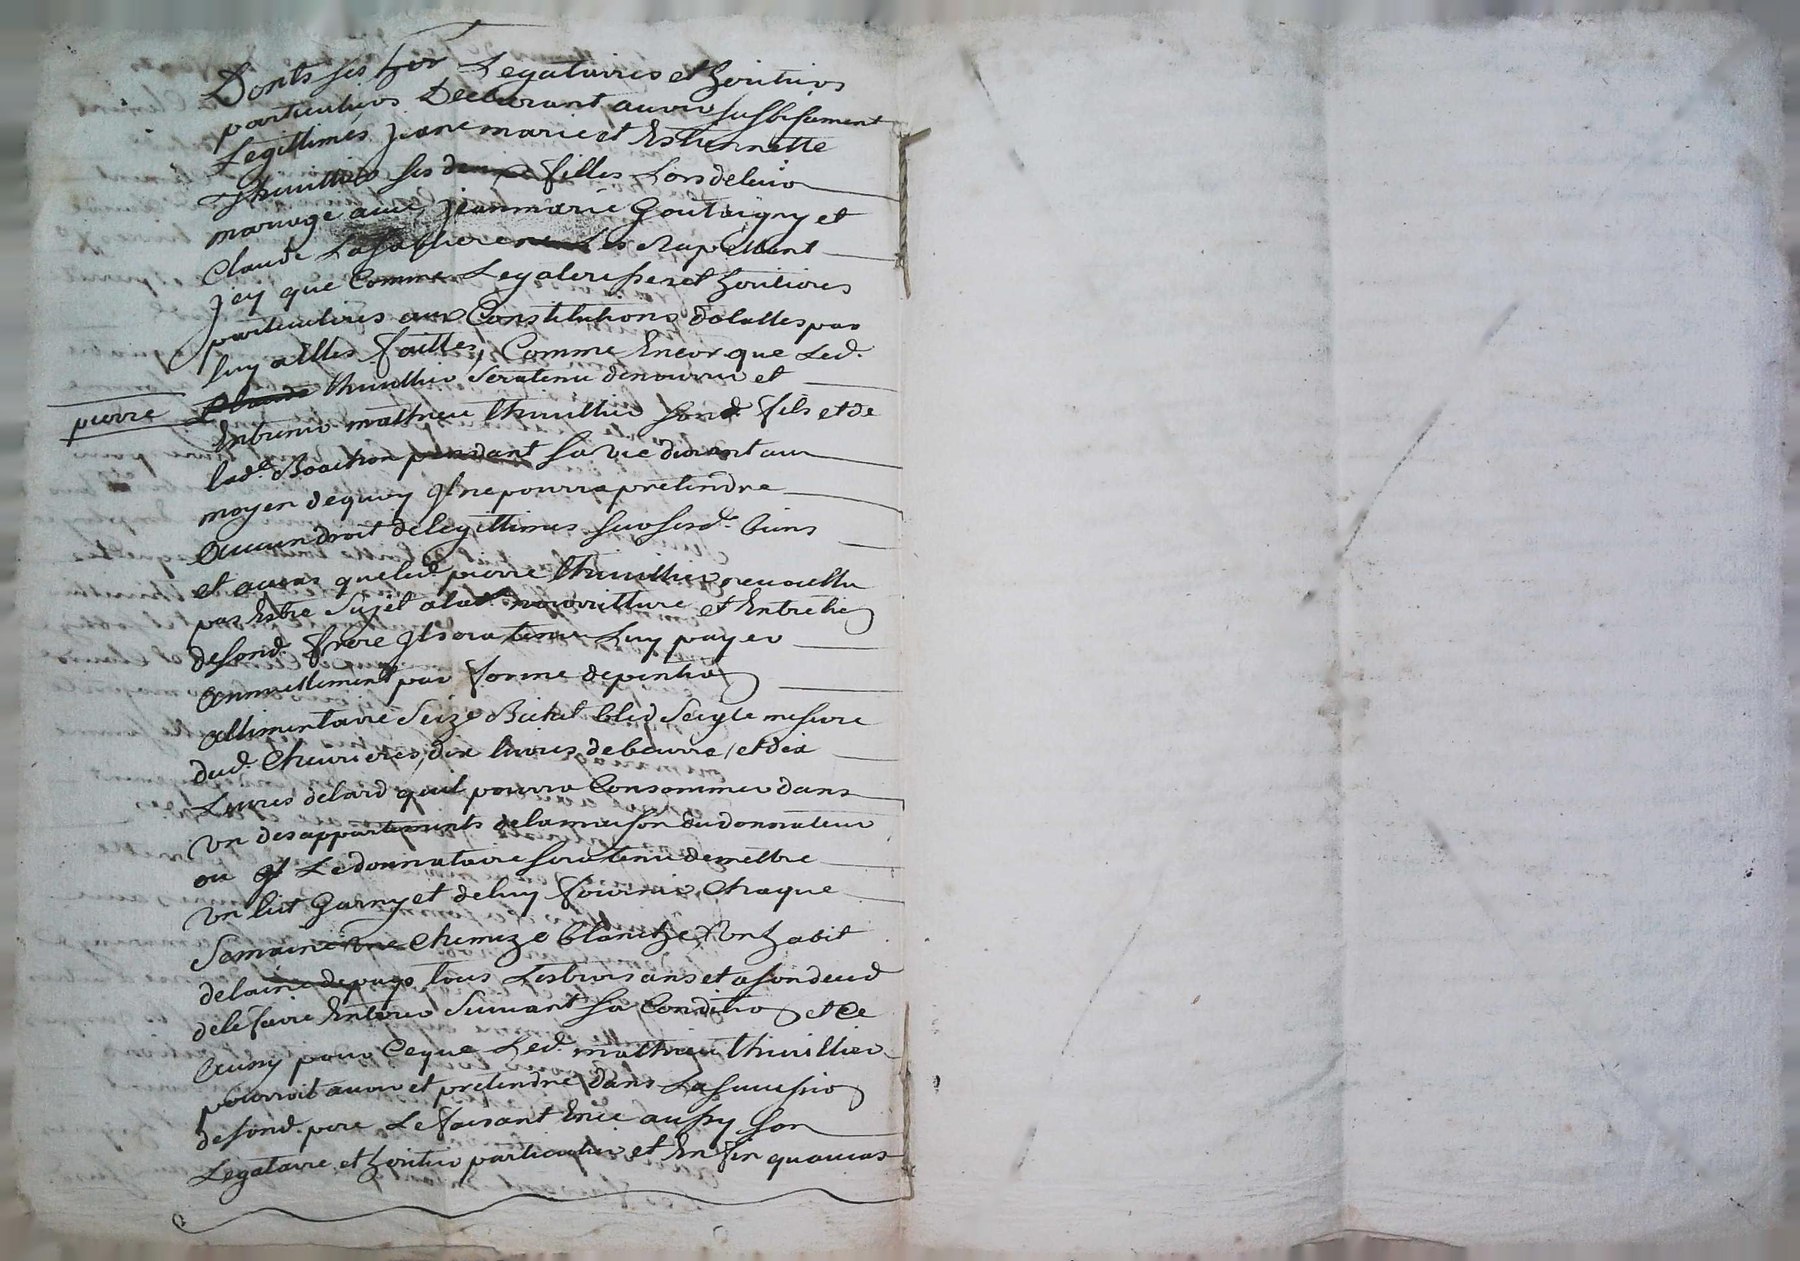 Donts ses hoir Legataires et heritiers
particuliers Declarant avoir suffisament
Legittimés Jeanemarie et Estiennette
thuillier ses deux filles Lors de leur
mariage avec Jeanmarie Goutaigny et
Claude Lasabliere ne Les Rapellent
Jcy que Comme Legateresses et heritieres
particulieres aux Constitutions dotalles par
luy a Elles faittes, Comme Encor que Led.
pierre
Claude thuillier sera tenu de nourrir et
Entrenir mathieu thuillier son d. fils et de
lad. Boachon pendant sa vie durant au
moyen de quoy Jl ne pourra pretendre
Aucun droit de legittimes sur sesd. biens
et au cas que led. pierre thuillier ne voullu
pas Estre Sujet a lad. nourritture et Entretien
de sond. frere Jl sera tenu Luy payer
Annuellement par forme de pention
allimentaire Seize Bichet bled Seigle mesure
dud. Chevrieres, dix livres de beurre, et dix
Livres de lard qu'il pourra Consommer dans
Un des appartements de la maison du donnateur
ou Jl Le donnataire sera tenu de mettre
Un lit Garny et de luy fournir Chaque
Semaine une Chemize blanche, Un habit
de laine de pays tous Les trois ans et a son deced
de le faire Enterer Suivant sa Condition et Ce
Aussy pour Ceque Led. mathieu thuillier
pourroit avoir et pretendre dans La succession
de sond. pere Le faisant En ce aussy son
Legataire et heritier particulier et En fin qu'au cas